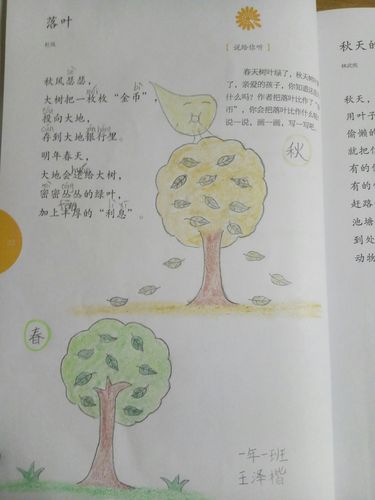 落叶
杜虹
秋风瑟瑟，
大树把一枚枚“金币”，
投向大地，
存到大地银行里。
明年春天，
大地会还给大树，
密密丛丛的绿叶，
加上丰厚的“利息”。
［说给你听］
春天树叶绿了，秋天树叶
了，亲爱的孩子，你知道这是
什么吗？作者把落叶比作了“
币”，你会把落叶比作什么呢？
说一说，画一画，写一写吧。
秋
春
一年一班
王泽楷
秋天的
林武宪
秋天，
用叶子
偷懒的
就把作
有的
有的
赶路
池塘
到处
动物